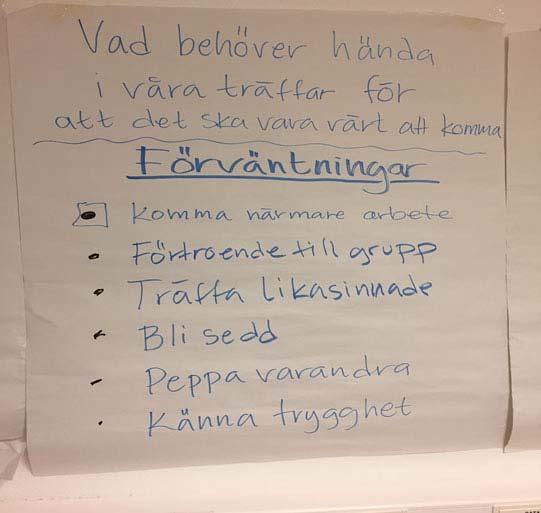 Vad behöver hända
i våra träffar för
att det ska vara värt att komma
Förväntningar
• Komma närmare arbete
• Förtroende till grupp
• Träffa likasinnade
• Bli sedd
- Peppa varandra
• Känna trygghet